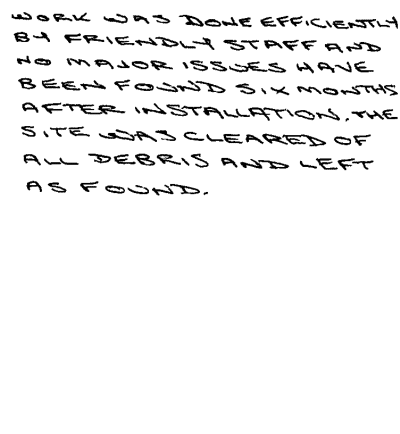 WORK WAS DONE EFFICIENTLY
BY FRIENDLY STAFF AND
NO MAJOR ISSUES HAVE
BEEN FOUND SIX MONTHS
AFTER INSTALLATION. THE
SITE WAS CLEARED OF
ALL DEBRIS AND LEFT
AS FOUND.